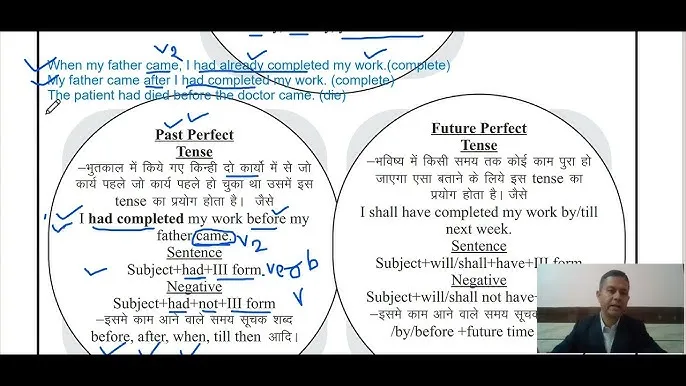 V2
When my father came, I had already completed my work.(complete)
My father came after I had completed my work. (complete)
The patient had died before the doctor came. (die)
Past Perfect
Tense
–भुतकाल में किये गए किन्ही दो कार्यो में से जो
कार्य पहले जो कार्य पहले हो चुका था उसमें इस
tense का प्रयोग होता है। जैसे
I had completed my work before my
father came. V2
Sentence
Subject+had+III form. verb
Negative
Subject+had+not+III form V
–इसमे काम आने वाले समय सूचक शब्द
before, after, when, till then आदि।
Future Perfect
Tense
–भविष्य में किसी समय तक कोई काम पुरा हो
जाएगा एसा बताने के लिये इस tense का
प्रयोग होता है। जैसे
I shall have completed my work by/till
next week.
Sentence
Subject+will/shall+have+III form
Negative
Subject+will/shall not have+
–इसमे काम आने वाले समय सूचक
/by/before +future time